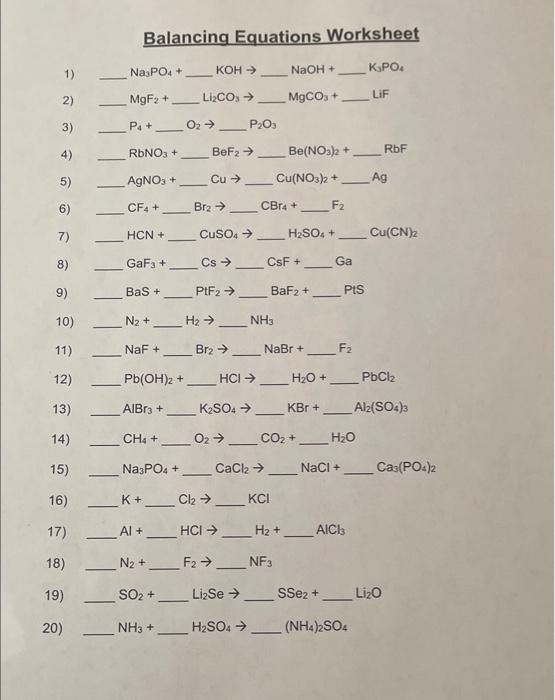 Balancing Equations Worksheet
1) ___ Na₃PO₄ + ___ KOH → ___ NaOH + ___ K₃PO₄
2) ___ MgF₂ + ___ Li₂CO₃ → ___ MgCO₃ + ___ LiF
3) ___ P₄ + ___ O₂ → ___ P₂O₃
4) ___ RbNO₃ + ___ BeF₂ → ___ Be(NO₃)₂ + ___ RbF
5) ___ AgNO₃ + ___ Cu → ___ Cu(NO₃)₂ + ___ Ag
6) ___ CF₄ + ___ Br₂ → ___ CBr₄ + ___ F₂
7) ___ HCN + ___ CuSO₄ → ___ H₂SO₄ + ___ Cu(CN)₂
8) ___ GaF₃ + ___ Cs → ___ CsF + ___ Ga
9) ___ BaS + ___ PtF₂ → ___ BaF₂ + ___ PtS
10) ___ N₂ + ___ H₂ → ___ NH₃
11) ___ NaF + ___ Br₂ → ___ NaBr + ___ F₂
12) ___ Pb(OH)₂ + ___ HCl → ___ H₂O + ___ PbCl₂
13) ___ AlBr₃ + ___ K₂SO₄ → ___ KBr + ___ Al₂(SO₄)₃
14) ___ CH₄ + ___ O₂ → ___ CO₂ + ___ H₂O
15) ___ Na₃PO₄ + ___ CaCl₂ → ___ NaCl + ___ Ca₃(PO₄)₂
16) ___ K + ___ Cl₂ → ___ KCl
17) ___ Al + ___ HCl → ___ H₂ + ___ AlCl₃
18) ___ N₂ + ___ F₂ → ___ NF₃
19) ___ SO₂ + ___ Li₂Se → ___ SSe₂ + ___ Li₂O
20) ___ NH₃ + ___ H₂SO₄ → ___ (NH₄)₂SO₄